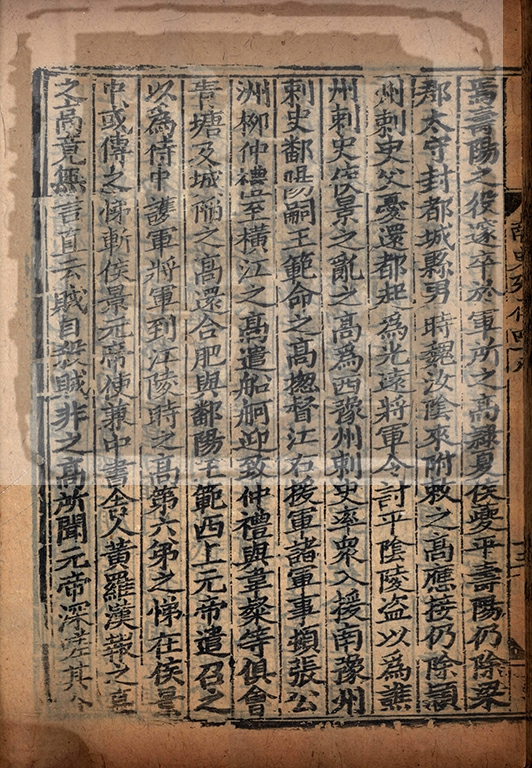 焉壽陽之役遂卒於軍所之高隷夏侯夔平壽陽仍除梁
郡太守封都城縣男時魏汝陰來附敕之高應接仍除潁
州刺史父憂還都起爲光遠將軍令討平陰陵盜以爲譙
州刺史侯景之亂之高爲西豫州刺史率衆入援南豫州
刺史鄱陽嗣王範命之高揔督江右援軍諸軍事頓張公
洲柳仲禮至橫江之高遣船舸迎致仲禮與韋粲等俱會
青塘及城陷之高還合肥與鄱陽王範西上元帝遣召之
以爲侍中護軍將軍到江陵時之高第六弟之悌在侯景
中或傳之悌斬侯景元帝使兼中書舍人黃羅漢報之高
之高竟無言直云賊自殺賊非之高所聞元帝深嗟其介